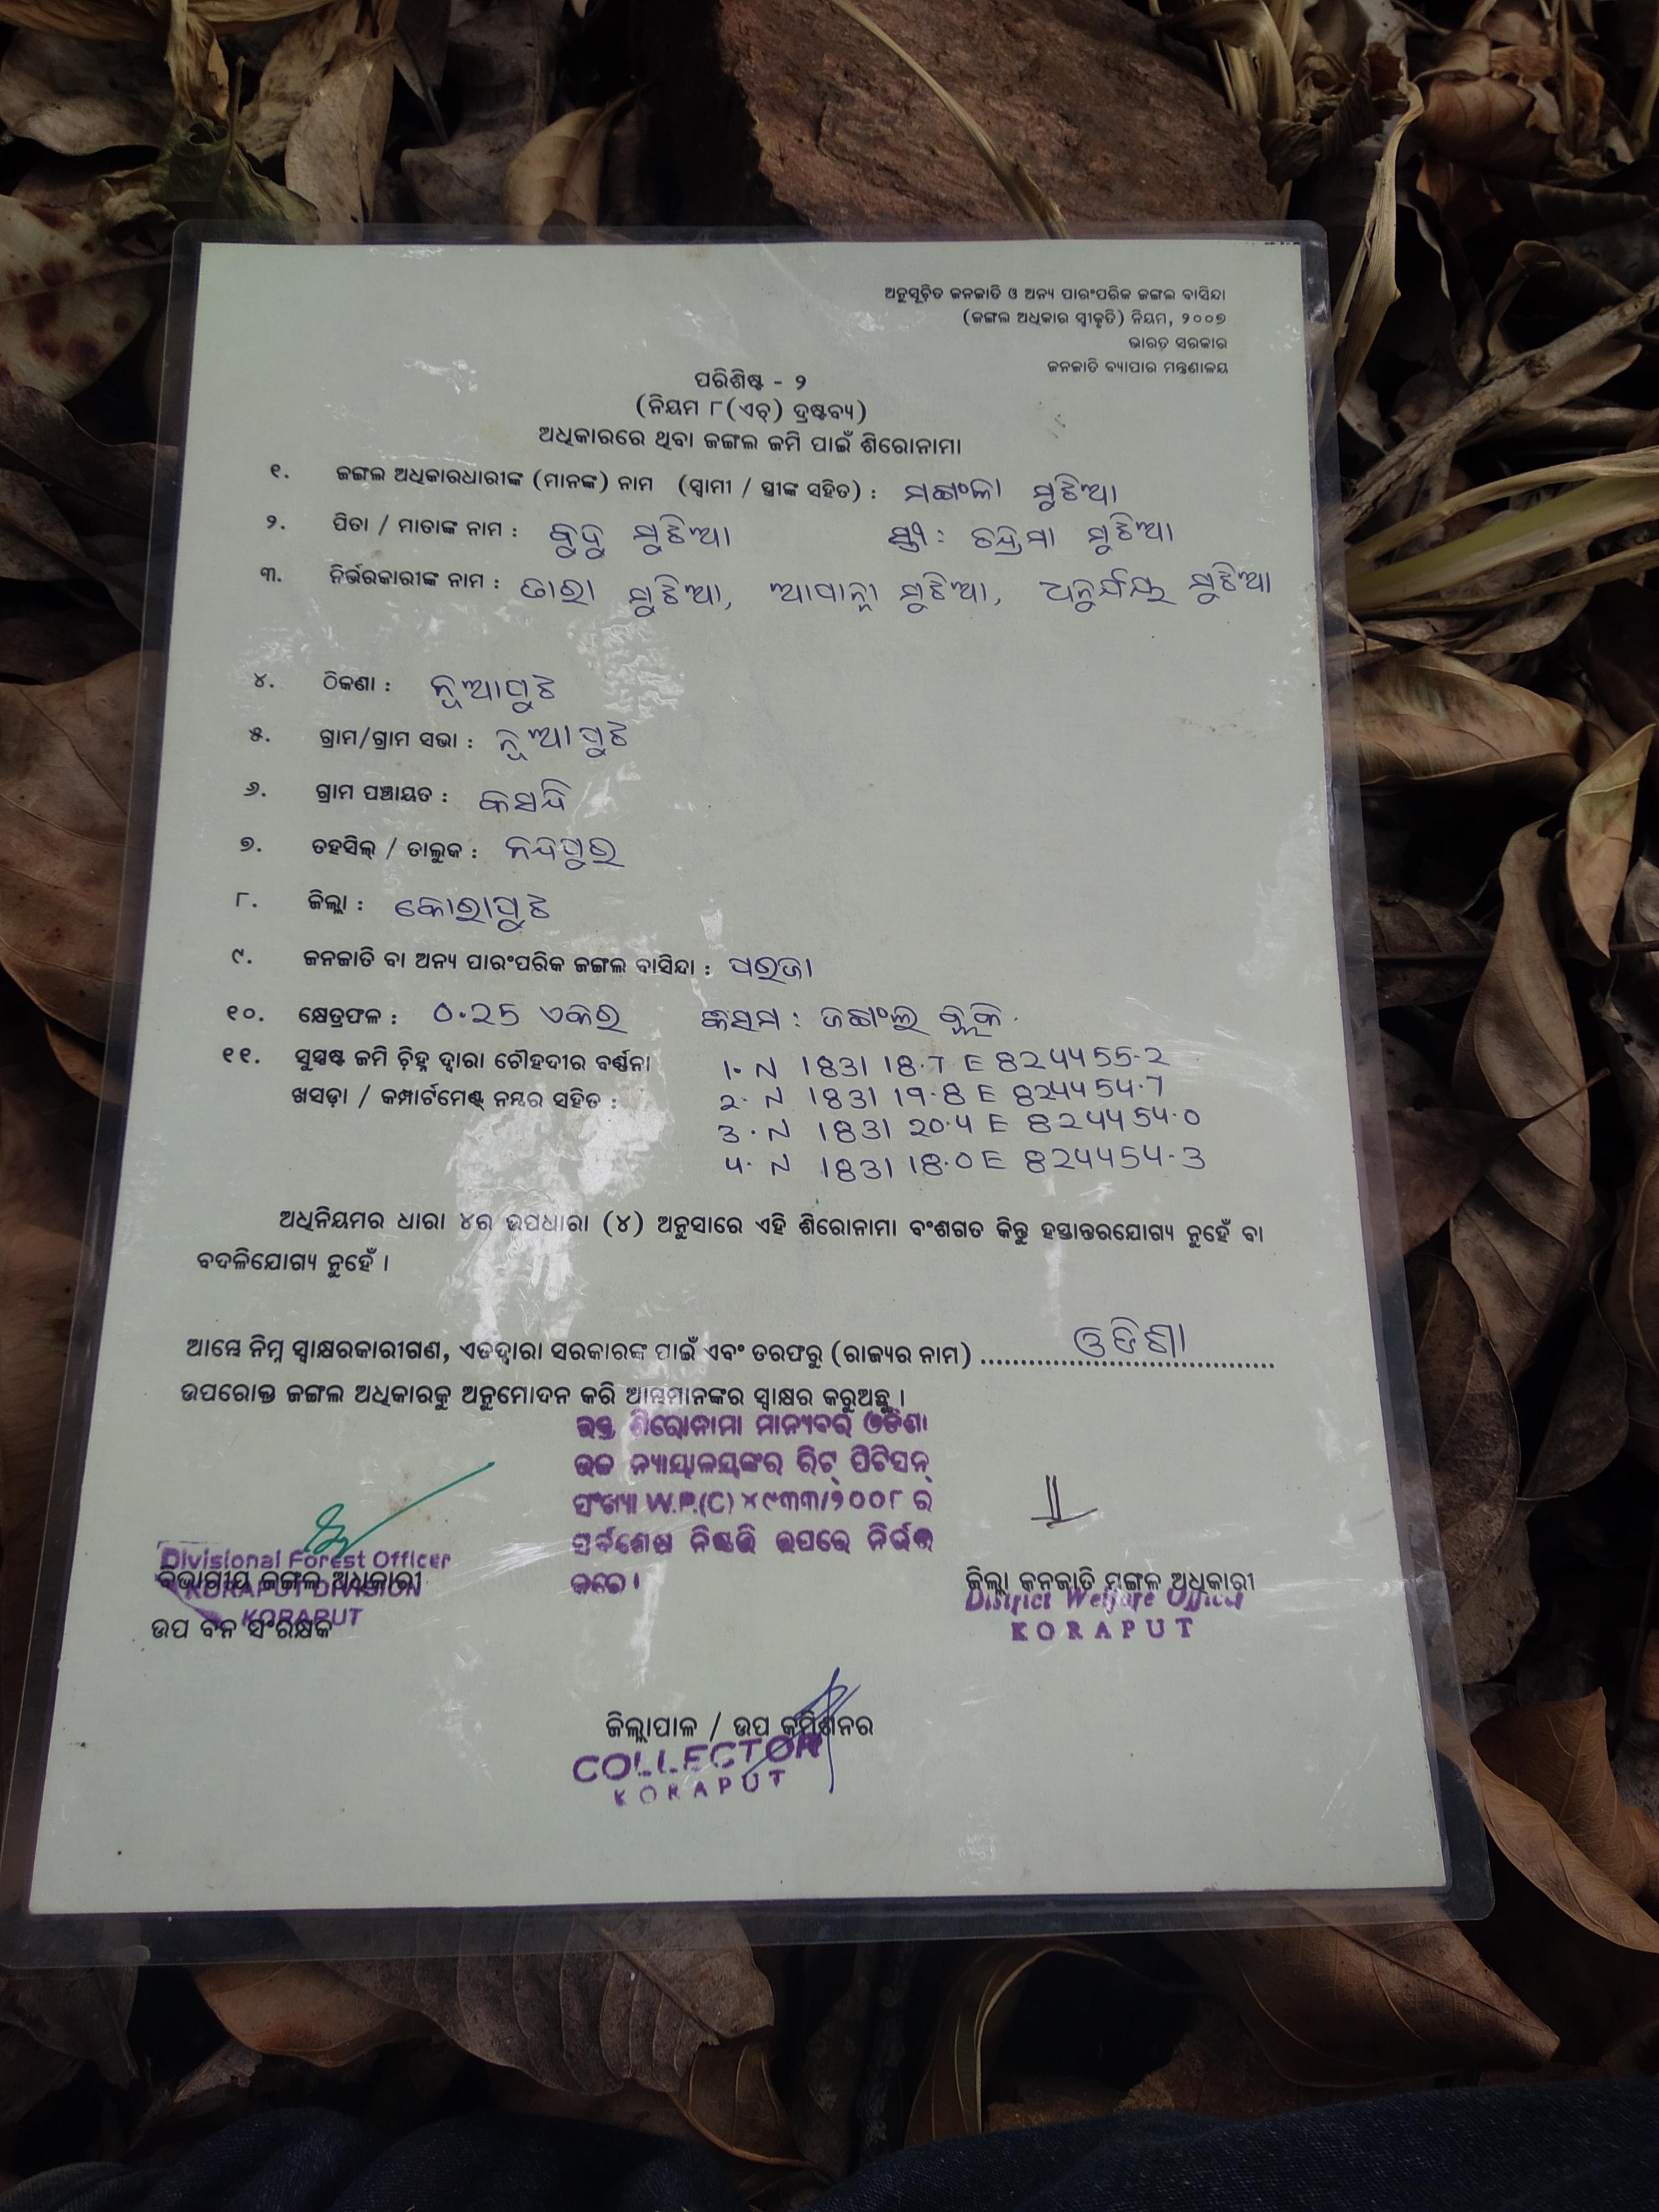 ଅନୁସୂଚିତ ଜନଜାତି ଓ ଅନ୍ୟ ପାରଂପରିକ ଜଙ୍ଗଲ ବାସିନ୍ଦା
(ଜଙ୍ଗଲ ଅଧିକାର ସ୍ୱୀକୃତି) ନିୟମ, ୨୦୦୭
ଭାରତ ସରକାର
ଜନଜାତି ବ୍ୟାପାର ମନ୍ତ୍ରଣାଳୟ
ପରିଶିଷ୍ଟ - ୨
(ନିୟମ ୮(ଏଚ୍) ଦ୍ରଷ୍ଟବ୍ୟ)
ଅଧିକାରରେ ଥିବା ଜଙ୍ଗଲ ଜମି ପାଇଁ ଶିରୋନାମା
୧. ଜଙ୍ଗଲ ଅଧିକାରଧାରୀଙ୍କ (ମାନଙ୍କ) ନାମ (ସ୍ୱାମୀ / ସ୍ତ୍ରୀଙ୍କ ସହିତ) : ମଙ୍ଗଳା ମୁଠିଆ
୨. ପିତା / ମାତାଙ୍କ ନାମ : ବୁଦୁ ମୁଠିଆ ସ୍ତ୍ରୀ : ଚନ୍ଦ୍ରମା ମୁଠିଆ
୩. ନିର୍ଭରକାରୀଙ୍କ ନାମ : ତାରା ମୁଠିଆ, ମୁଠିଆ, ମୁଠିଆ
୪. ଠିକଣା : ନୂଆପୁଟ
୫. ଗ୍ରାମ/ଗ୍ରାମ ସଭା : ନୂଆପୁଟ
୬. ଗ୍ରାମ ପଞ୍ଚାୟତ : କସନ୍ଦି
୭. ତହସିଲ୍ / ତାଲୁକ : ନନ୍ଦପୁର
୮. ଜିଲ୍ଲା : କୋରାପୁଟ
୯. ଜନଜାତି ବା ଅନ୍ୟ ପାରଂପରିକ ଜଙ୍ଗଲ ବାସିନ୍ଦା : ପରଜା
୧୦. କ୍ଷେତ୍ରଫଳ : 0.25 ଏକର କିସମ : ଜଙ୍ଗଲ
୧୧. ସୁସ୍ପଷ୍ଟ ଜମି ଚିହ୍ନ ଦ୍ୱାରା ଚୌହଦୀର ବର୍ଣ୍ଣନା 1. N 1831 18.7 E 824455.2
ଖସଡ଼ା / କମ୍ପାର୍ଟମେଣ୍ଟ୍ ନମ୍ବର ସହିତ : 2. N 1831 19.8 E 824454.7
3. N 1831 20.4 E 824454.0
4. N 1831 18.0 E 824454.3
ଅଧିନିୟମର ଧାରା ୪ର ଉପଧାରା (୪) ଅନୁସାରେ ଏହି ଶିରୋନାମା ବଂଶଗତ କିନ୍ତୁ ହସ୍ତାନ୍ତରଯୋଗ୍ୟ ନୁହେଁ ବା
ବଦଳିଯୋଗ୍ୟ ନୁହେଁ ।
ଆମ୍ଭେ ନିମ୍ନ ସ୍ୱାକ୍ଷରକାରୀଗଣ, ଏତଦ୍ୱାରା ସରକାରଙ୍କ ପାଇଁ ଏବଂ ତରଫରୁ (ରାଜ୍ୟର ନାମ) ଓଡିଶା
ଉପରୋକ୍ତ ଜଙ୍ଗଲ ଅଧିକାରକୁ ଅନୁମୋଦନ କରି ଆମ୍ଭମାନଙ୍କର ସ୍ୱାକ୍ଷର କରୁଅଛୁ ।
ଉକ୍ତ ଶିରୋନାମା ମାନ୍ୟବର ଓଡିଶା
ଉଚ୍ଚ ନ୍ୟାୟାଳୟଙ୍କର ରିଟ୍ ପିଟିସନ୍
ସଂଖ୍ୟା W.P.(C) ୪୯୩୩/୨୦୦୮ ର
ସର୍ବଶେଷ ନିଷ୍ପତ୍ତି ଉପରେ ନିର୍ଭର
କରେ ।
Divisional Forest Officer
ବିଭାଗୀୟ ଜଙ୍ଗଲ ଅଧିକାରୀ
KORAPUT DIVISION
KORAPUT
ଉପ ବନ ସଂରକ୍ଷକ
ଜିଲ୍ଲା ଜନଜାତି ମଙ୍ଗଳ ଅଧିକାରୀ
District Welfare Officer
KORAPUT
ଜିଲ୍ଲାପାଳ / ଉପ କମିଶନର
COLLECTOR
KORAPUT